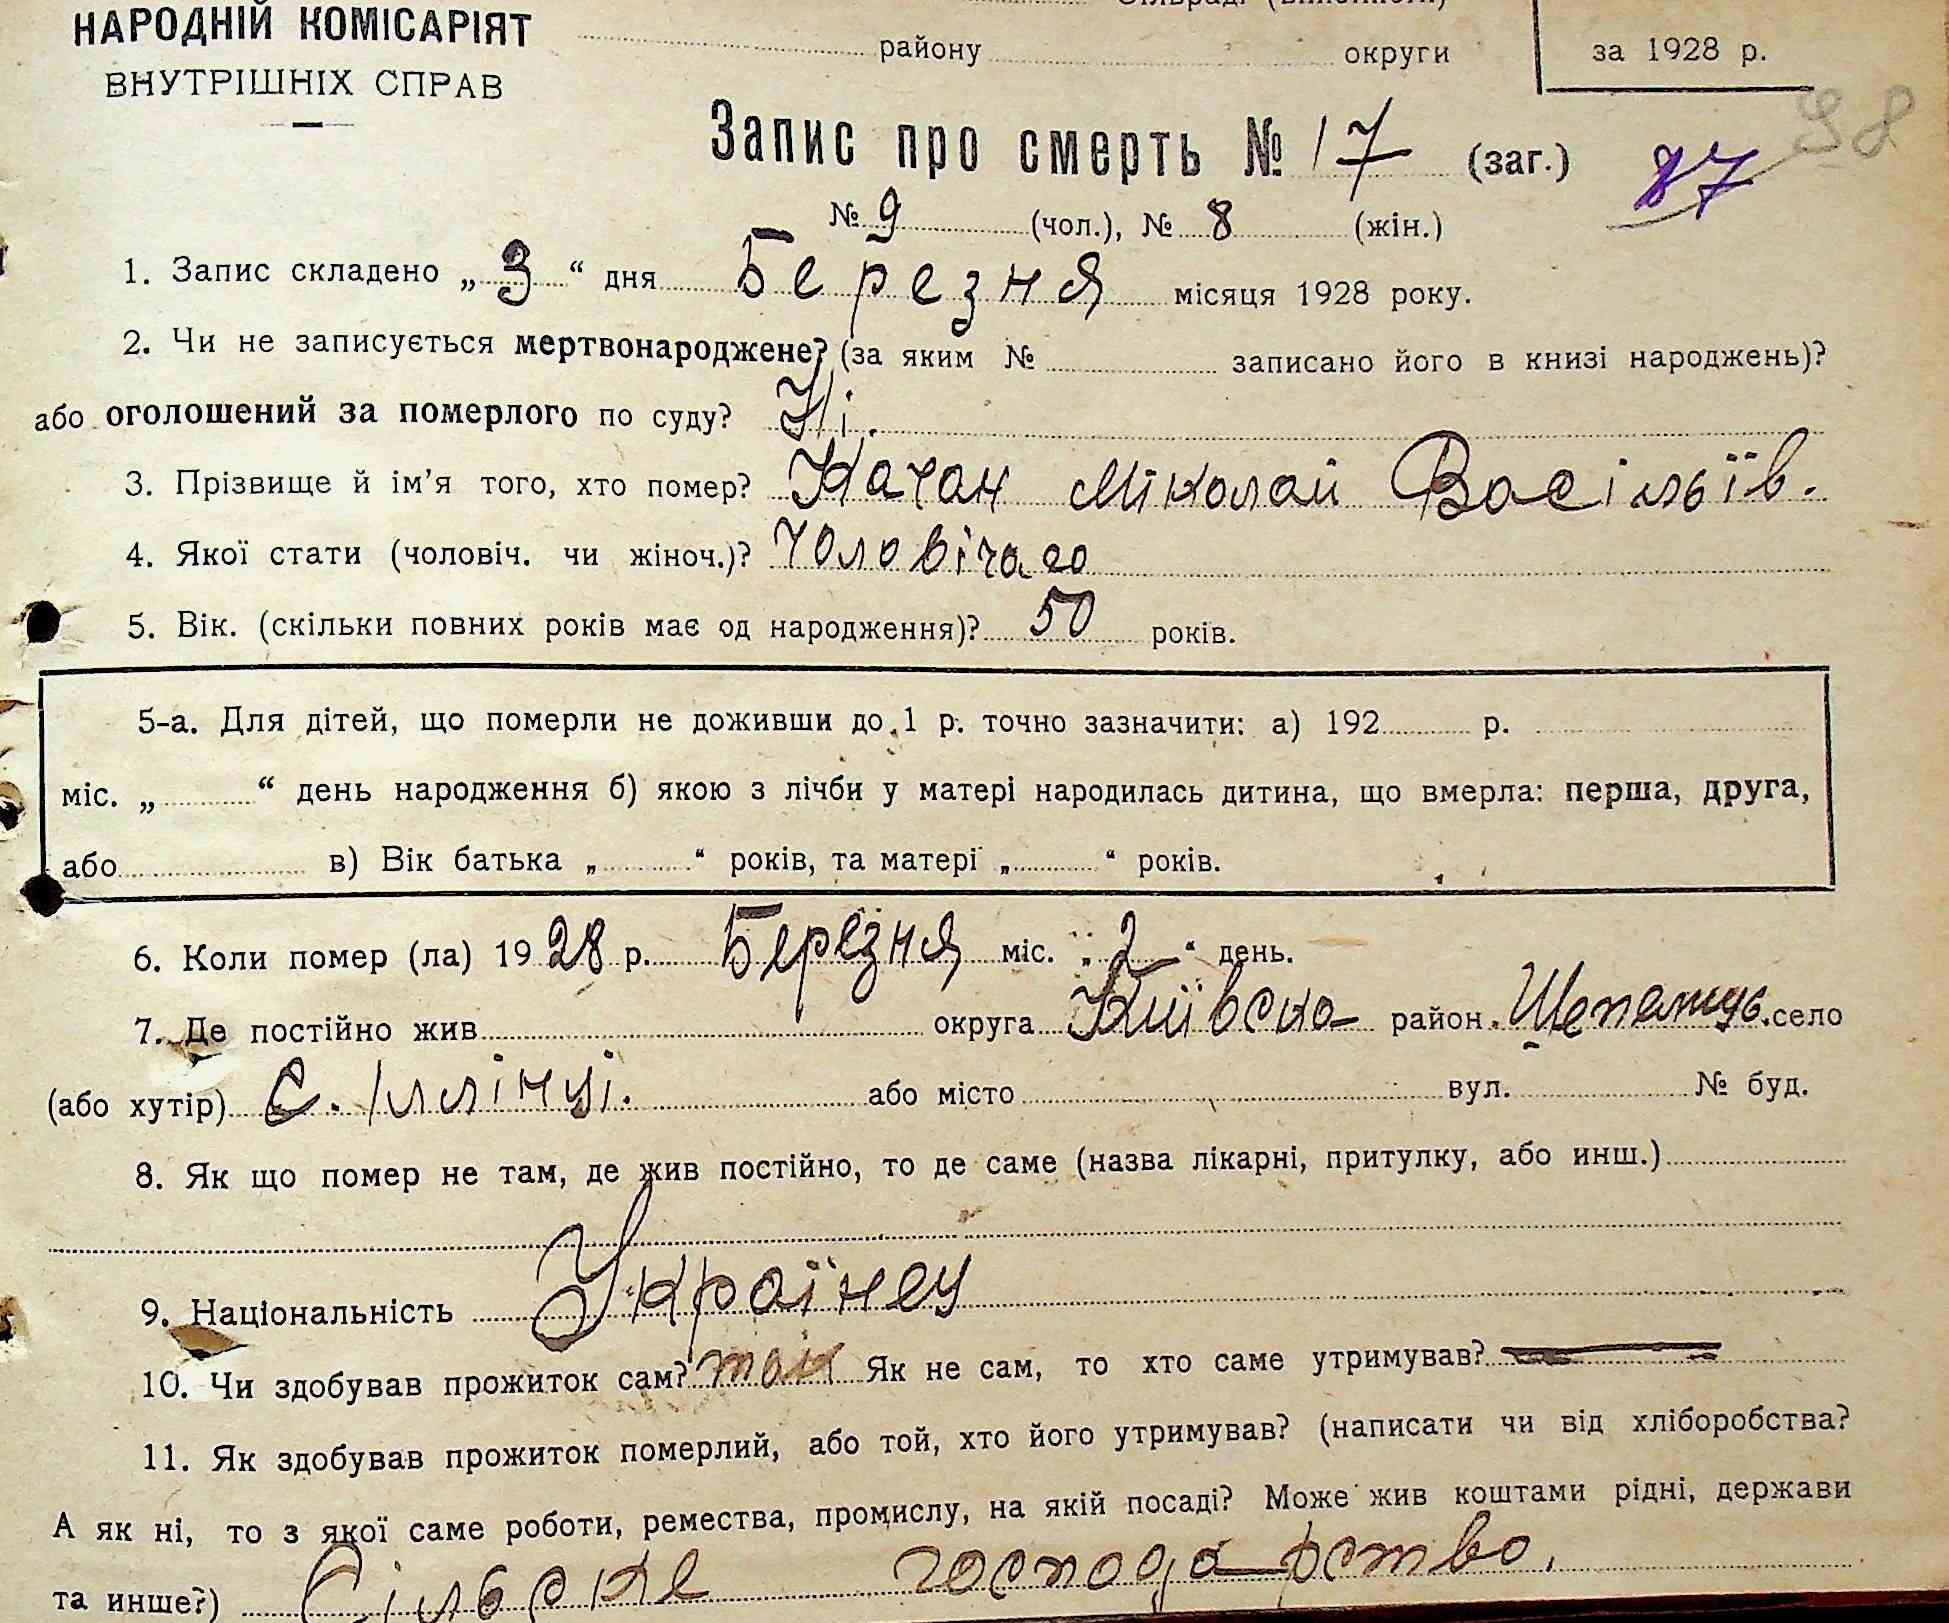 НАРОДНІЙ КОМІСАРІЯТ
ВНУТРІШНІХ СПРАВ
району округи
за 1928 р.
98
Запис про смерть № 17 (заг.) 87
№ 9 (чол.), № 8 (жін.)
1. Запис складено „ 3 “ дня Березня місяця 1928 року.
2. Чи не записується мертвонароджене? (за яким № записано його в книзі народжень)?
або оголошений за померлого по суду? Ні.
3. Прізвище й ім’я того, хто помер? Качан Міколай Васільїв.
4. Якої стати (чоловіч. чи жіноч.)? Чоловічаго
5. Вік. (скільки повних років має од народження)? 50 років.
5-а. Для дітей, що померли не доживши до 1 р. точно зазначити: а) 192 р.
міс. „ “ день народження б) якою з лічби у матері народилась дитина, що вмерла: перша, друга,
або в) Вік батька „ “ років, та матері „ “ років.
6. Коли помер (ла) 19 28 р. Березня міс. „ 2 “ день.
7. Де постійно жив округа Київска район село
(або хутір) С. Іллінці. або місто вул. № буд.
8. Як що помер не там, де жив постійно, то де саме (назва лікарні, притулку, або инш.)
9. Національність Українец
10. Чи здобував прожиток сам? так Як не сам, то хто саме утримував?
11. Як здобував прожиток померлий, або той, хто його утримував? (написати чи від хліборобства?
А як ні, то з якої саме роботи, ремества, промислу, на якій посаді? Може жив коштами рідні, держави
та инше?) Сільське господарство.